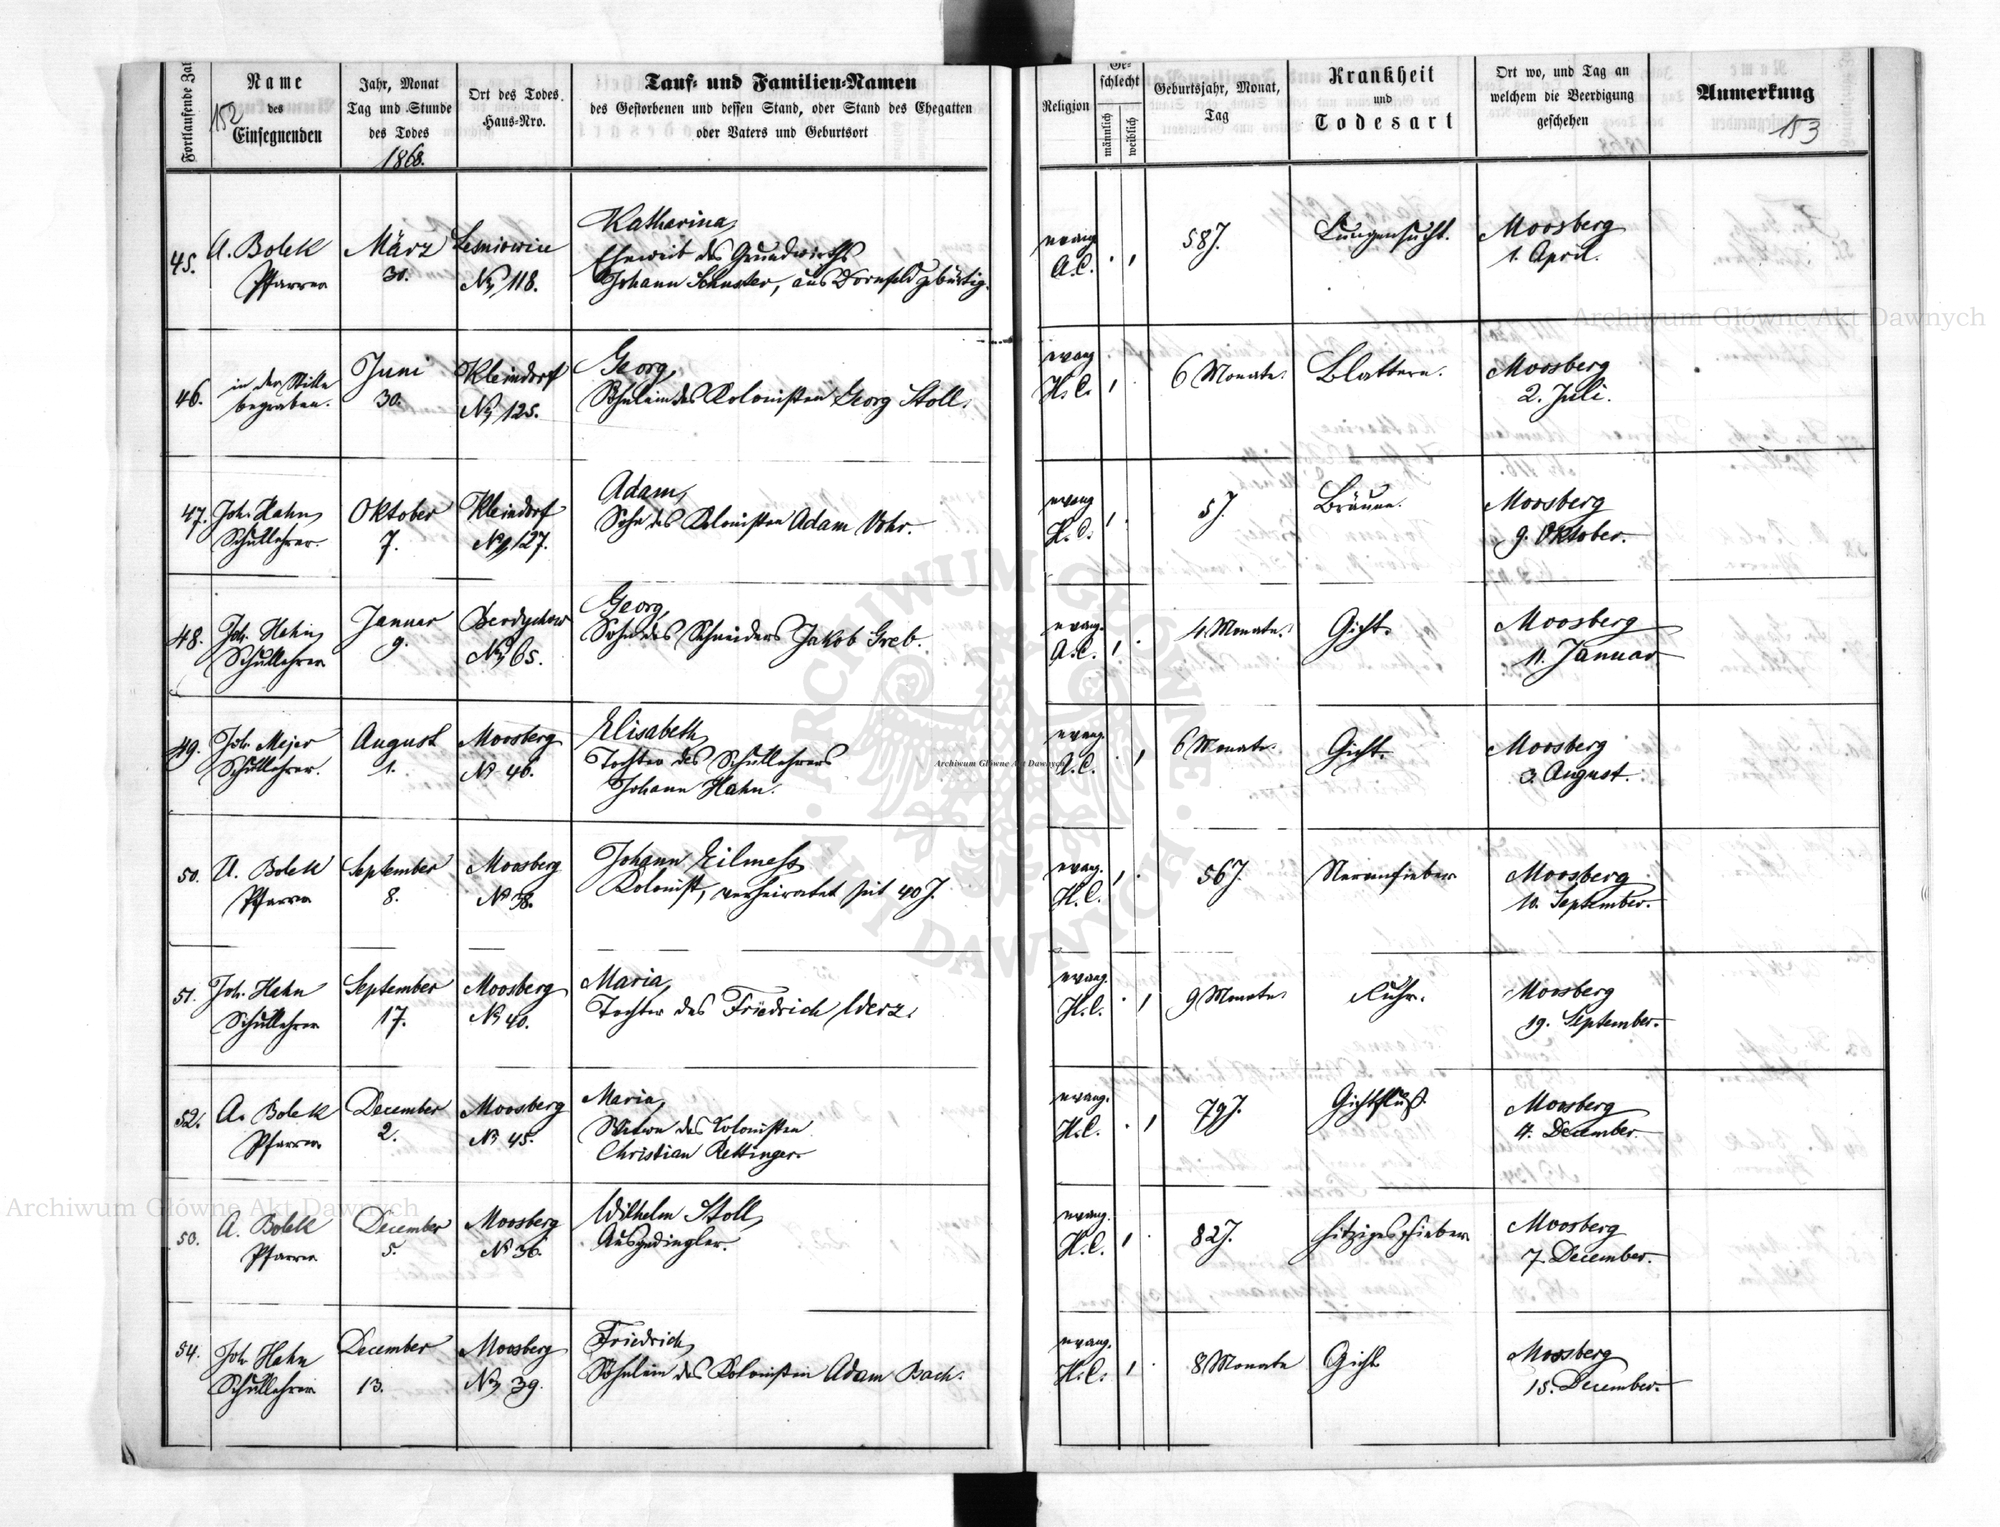 152
Fortlaufende Zal
Name
des
Einsegnenden
Jahr, Monat
Tag und Stunde
des Todes
1868.
Ort des Todes.
Haus-Nro.
Tauf- und Familien-Namen
des Gestorbenen und dessen Stand, oder Stand des Ehegatten
oder Vaters und Geburtsort
Religion
Ge-
schlecht
männlich
weiblich
Geburtsjahr, Monat,
Tag
Krankheit
und
Todesart
Ort wo, und Tag an
welchem die Beerdigung
geschehen
Anmerkung
153
45.
A. Bolek
Pfarrer
März
30.
Lesniowice
No 118.
Katharina,
Eheweib des Grundwirths
Johann Schuster, aus Dornfeld gebürtig.
evang
A.C.
58 J.
Lungensucht.
Moosberg
1. April.
46.
in der Stille
begraben.
Juni
30.
Kleindorf
No 125.
Georg,
Söhnlein des Kolonisten Georg Stoll.
evang
H.C.
6 Monate.
Blattern.
Moosberg
2. Juli.
47.
Joh. Hahn,
Schullehrer.
Oktober
7.
Kleindorf
No 127.
Adam,
Sohn des Kolonisten Adam Bohr.
evang
H.C.
5 J.
Bräune.
Moosberg
9. Oktober.
48.
Joh. Hahn,
Schullehrer
Januar
9.
Berdychow
No 65.
Georg,
Sohn des Schneiders Jakob Greb.
evang.
A.C.
4 Monate.
Gicht.
Moosberg
11. Januar.
49.
Joh. Mejer
Schullehrer.
August
1.
Moosberg
No 46.
Elisabeth,
Tochter des Schullehrers
Johann Hahn.
evang.
A.C.
6 Monate.
Gicht.
Moosberg
3. August.
50.
A. Bolek
Pfarrer
September
8.
Moosberg
No 38.
Johann Eilmess,
Kolonist, verheiratet seit 40 J.
evang.
H.C.
56 J.
Nervenfieber
Moosberg
10. September.
51.
Joh. Hahn
Schullehrer
September
17.
Moosberg
No 40.
Maria,
Tochter des Friedrich Werz.
evang.
H.C.
9 Monate.
Ruhr.
Moosberg
19. September.
52.
A. Bolek
Pfarrer
December
2.
Moosberg
No 45.
Maria,
Witwe des Kolonisten
Christian Rettinger.
evang.
H.C.
79 J.
Gichtfluß
Moosberg
4. December.
53.
A. Bolek
Pfarrer
December
5.
Moosberg
No 36.
Wilhelm Stoll,
Ausgedingler.
evang.
H.C.
82 J.
hitziges Fieber
Moosberg
7. December.
54.
Joh. Hahn
Schullehrer
December
13.
Moosberg
No 39.
Friedrich,
Söhnlein des Kolonisten Adam Bach.
evang.
H.C.
8 Monate
Gicht
Moosberg
15. December.
Archiwum Główne Akt Dawnych
Archiwum Główne Akt Dawnych
Archiwum Główne Akt Dawnych
ARCHIWUM GŁÓWNE AKT DAWNYCH